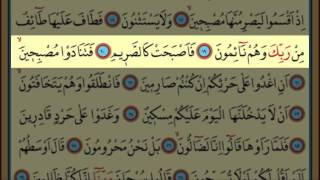 اِذْ اَقْسَمُوا لَيَصْرِمُنَّهَا مُصْبِحٖينَ ﴿١٧﴾ وَلَا يَسْتَثْنُونَ ﴿١٨﴾ فَطَافَ عَلَيْهَا طَٓائِفٌ
مِنْ رَبِّكَ وَهُمْ نَٓائِمُونَ ﴿١٩﴾ فَاَصْبَحَتْ كَالصَّرٖيمِ ﴿٢٠﴾ فَتَنَادَوْا مُصْبِحٖينَ ﴿٢١﴾
اَنِ اغْدُوا عَلٰى حَرْثِكُمْ اِنْ كُنْتُمْ صَارِمٖينَ ﴿٢٢﴾ فَانْطَلَقُوا وَهُمْ يَتَخَافَتُونَ ﴿٢٣﴾
اَنْ لَا يَدْخُلَنَّهَا الْيَوْمَ عَلَيْكُمْ مِسْكٖينٌ ﴿٢٤﴾ وَغَدَوْا عَلٰى حَرْدٍ قَادِرٖينَ ﴿٢٥﴾
فَلَمَّا رَاَوْهَا قَالُٓوا اِنَّا لَضَٓالُّونَ ﴿٢٦﴾ بَلْ نَحْنُ مَحْرُومُونَ ﴿٢٧﴾ قَالَ اَوْسَطُهُمْ
اَلَمْ اَقُلْ لَكُمْ لَوْلَا تُسَبِّحُونَ ﴿٢٨﴾ قَالُوا سُبْحَانَ رَبِّنَٓا اِنَّا كُنَّا ظَالِمٖينَ ﴿٢٩﴾